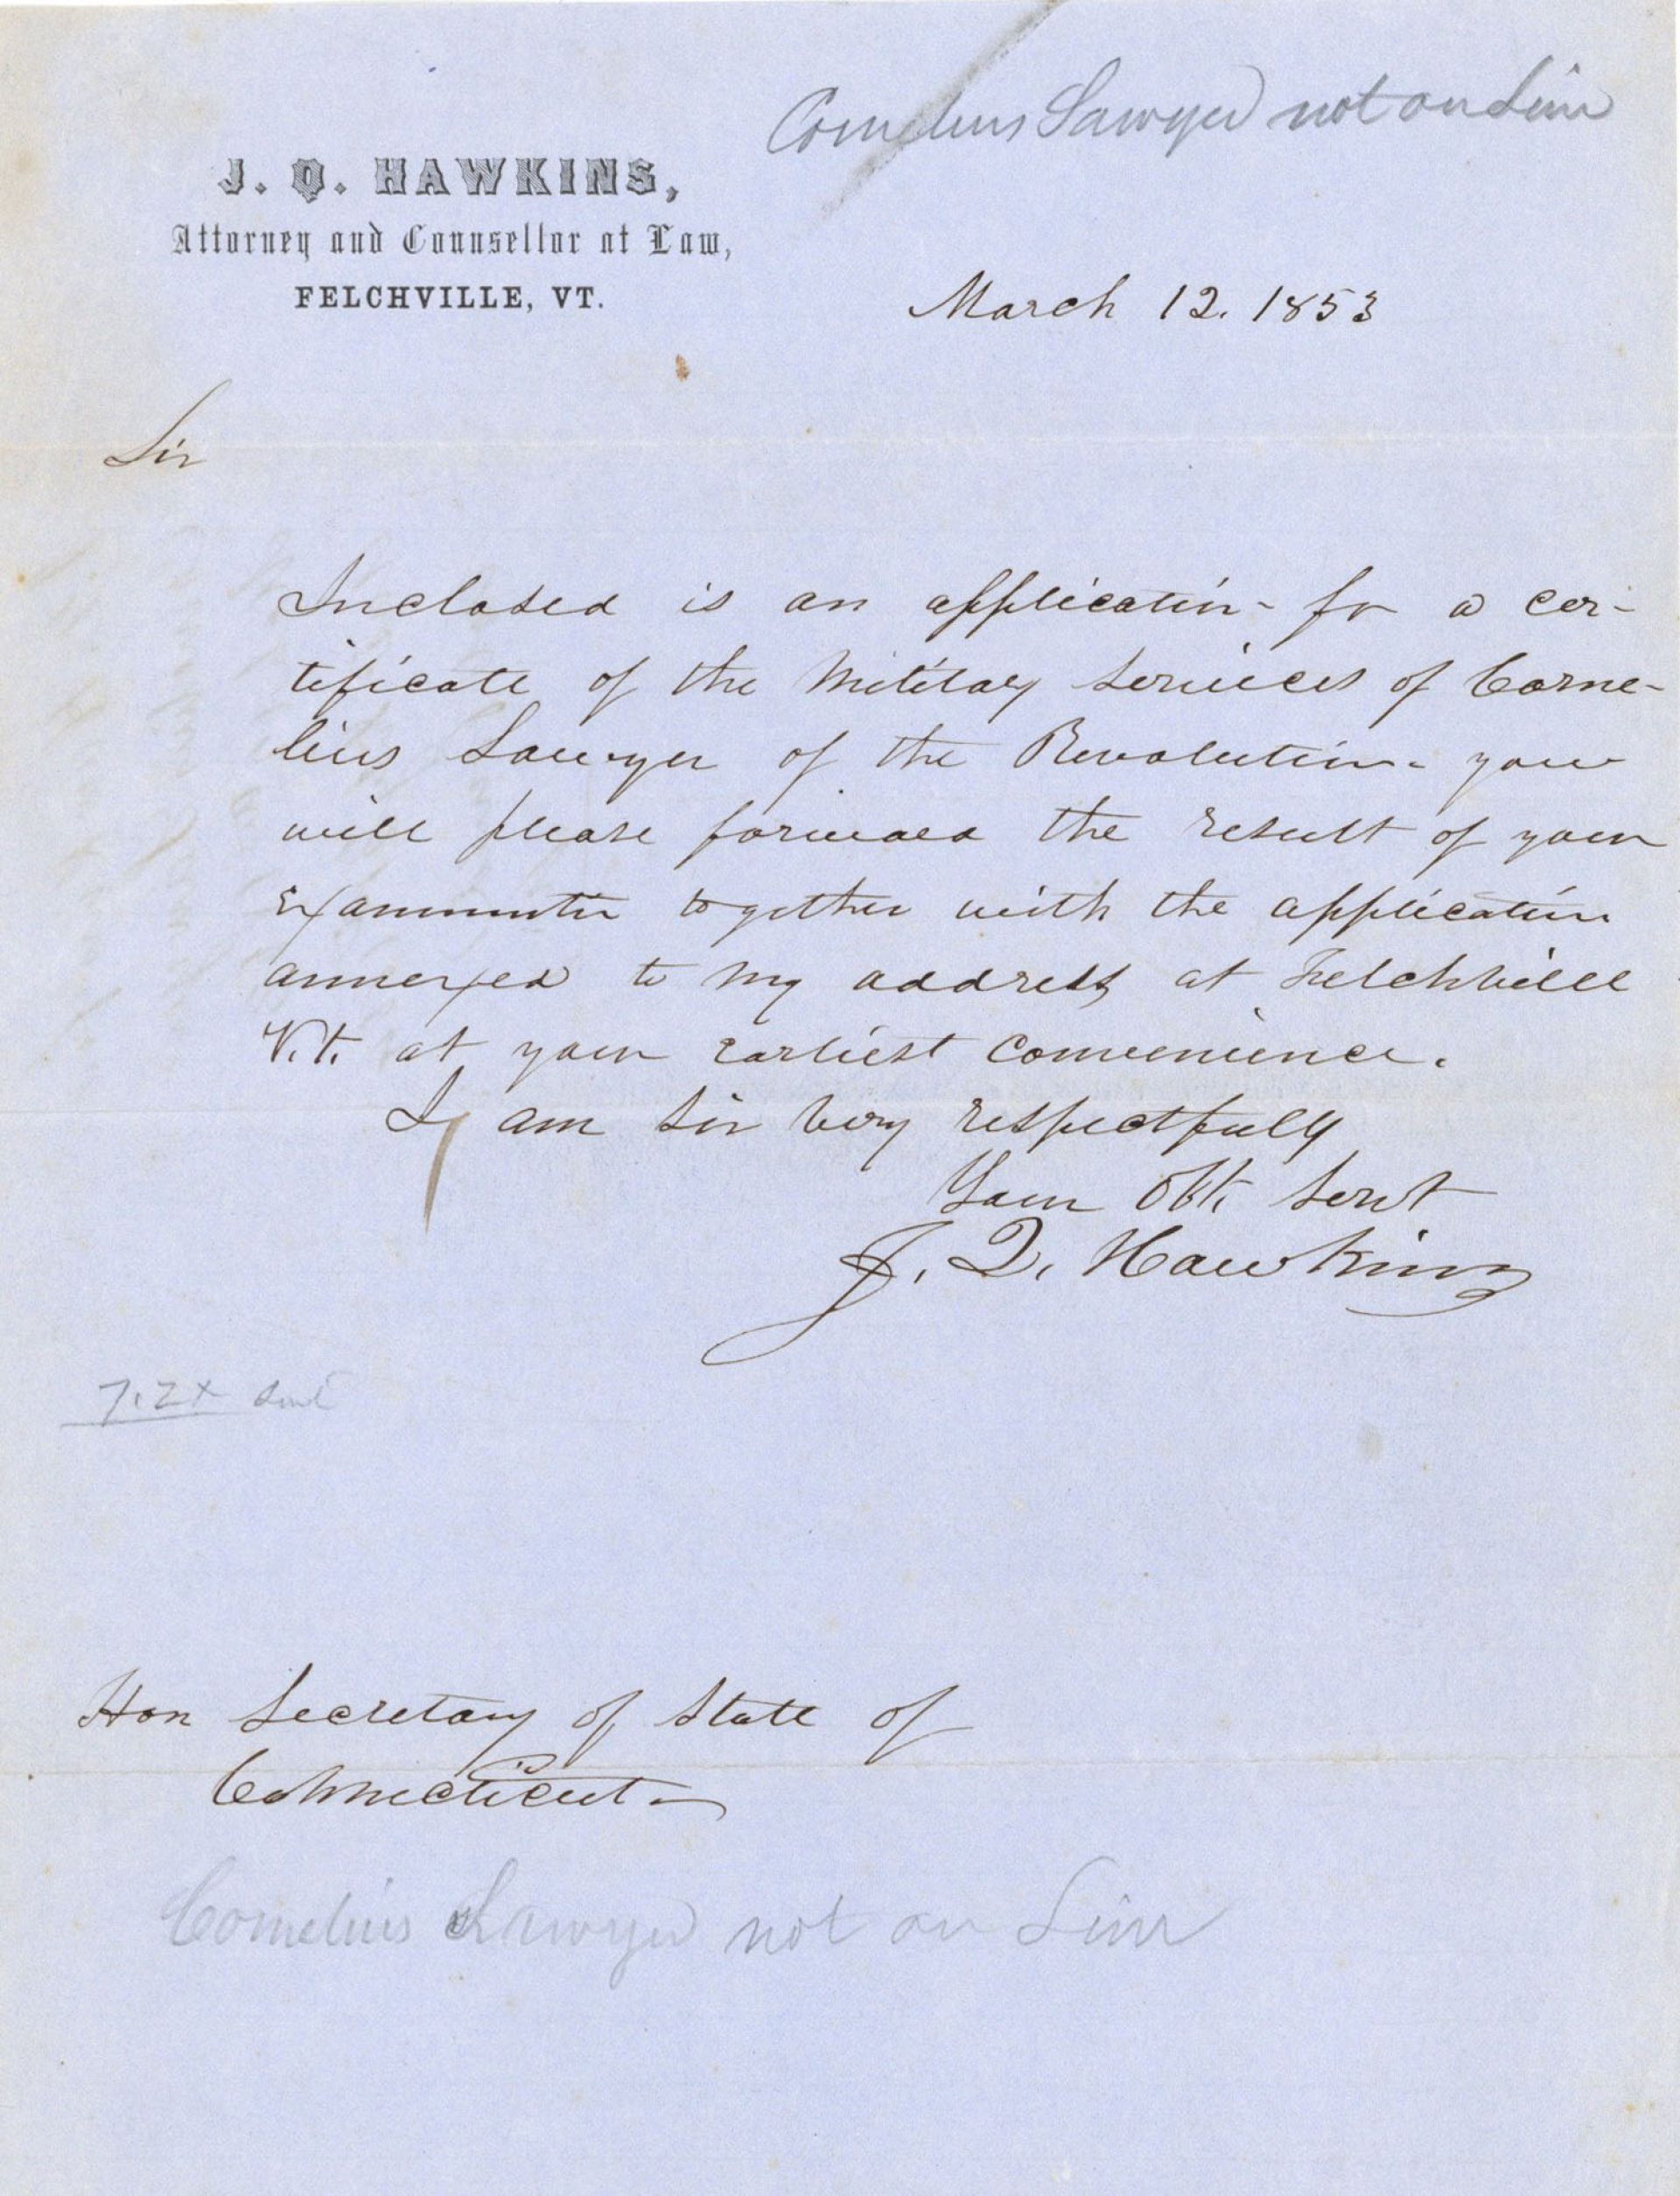 Cornelius Sawyer not on Line
J. Q. HAWKINS,
Attorney and Counsellor at Law,
FELCHVILLE, VT.
March 12. 1853
Sir
Inclosed is an application for a cer-
tificate of the Military Services of Corne-
lius Sawyer of the Revolution. you
will please forward the result of your
examination together with the application
annexed to my address at Felchville
V.t. at your earliest convenience.
I am Sir very respectfully
Your Obt. Servt
J. Q. Hawkins
Hon Secretary of State of
Connecticut
Cornelius Sawyer not on Line